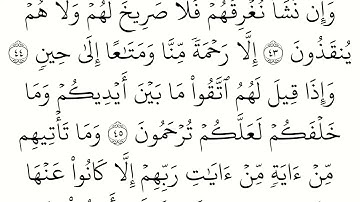 وَإِن نَّشَأْ نُغْرِقْهُمْ فَلَا صَرِيخَ لَهُمْ وَلَا هُمْ
يُنقَذُونَ ٤٣ إِلَّا رَحْمَةً مِّنَّا وَمَتَٰعًا إِلَىٰ حِينٍ ٤٤
وَإِذَا قِيلَ لَهُمُ ٱتَّقُوا۟ مَا بَيْنَ أَيْدِيكُمْ وَمَا
خَلْفَكُمْ لَعَلَّكُمْ تُرْحَمُونَ ٤٥ وَمَا تَأْتِيهِم
مِّنْ ءَايَةٍ مِّنْ ءَايَٰتِ رَبِّهِمْ إِلَّا كَانُوا۟ عَنْهَا